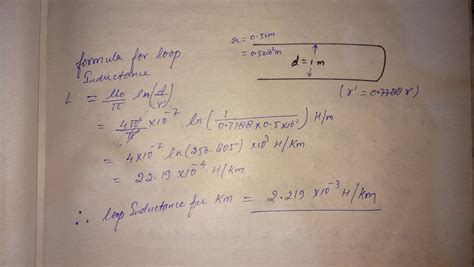 formula for loop
Inductance
r = 0.5cm
= 0.5x10²m
d = 1m
(r' = 0.7788 r)
L = μ₀/π ln(d/r')
= 4π/π x10⁻⁷ ln(1/0.7788 x 0.5 x10⁻²) H/m
= 4x10⁻⁷ ln(256.805) x10³ H/Km
= 22.19 x10⁻⁴ H/Km
∴ loop Inductance per Km = 2.219 x10⁻³ H/Km